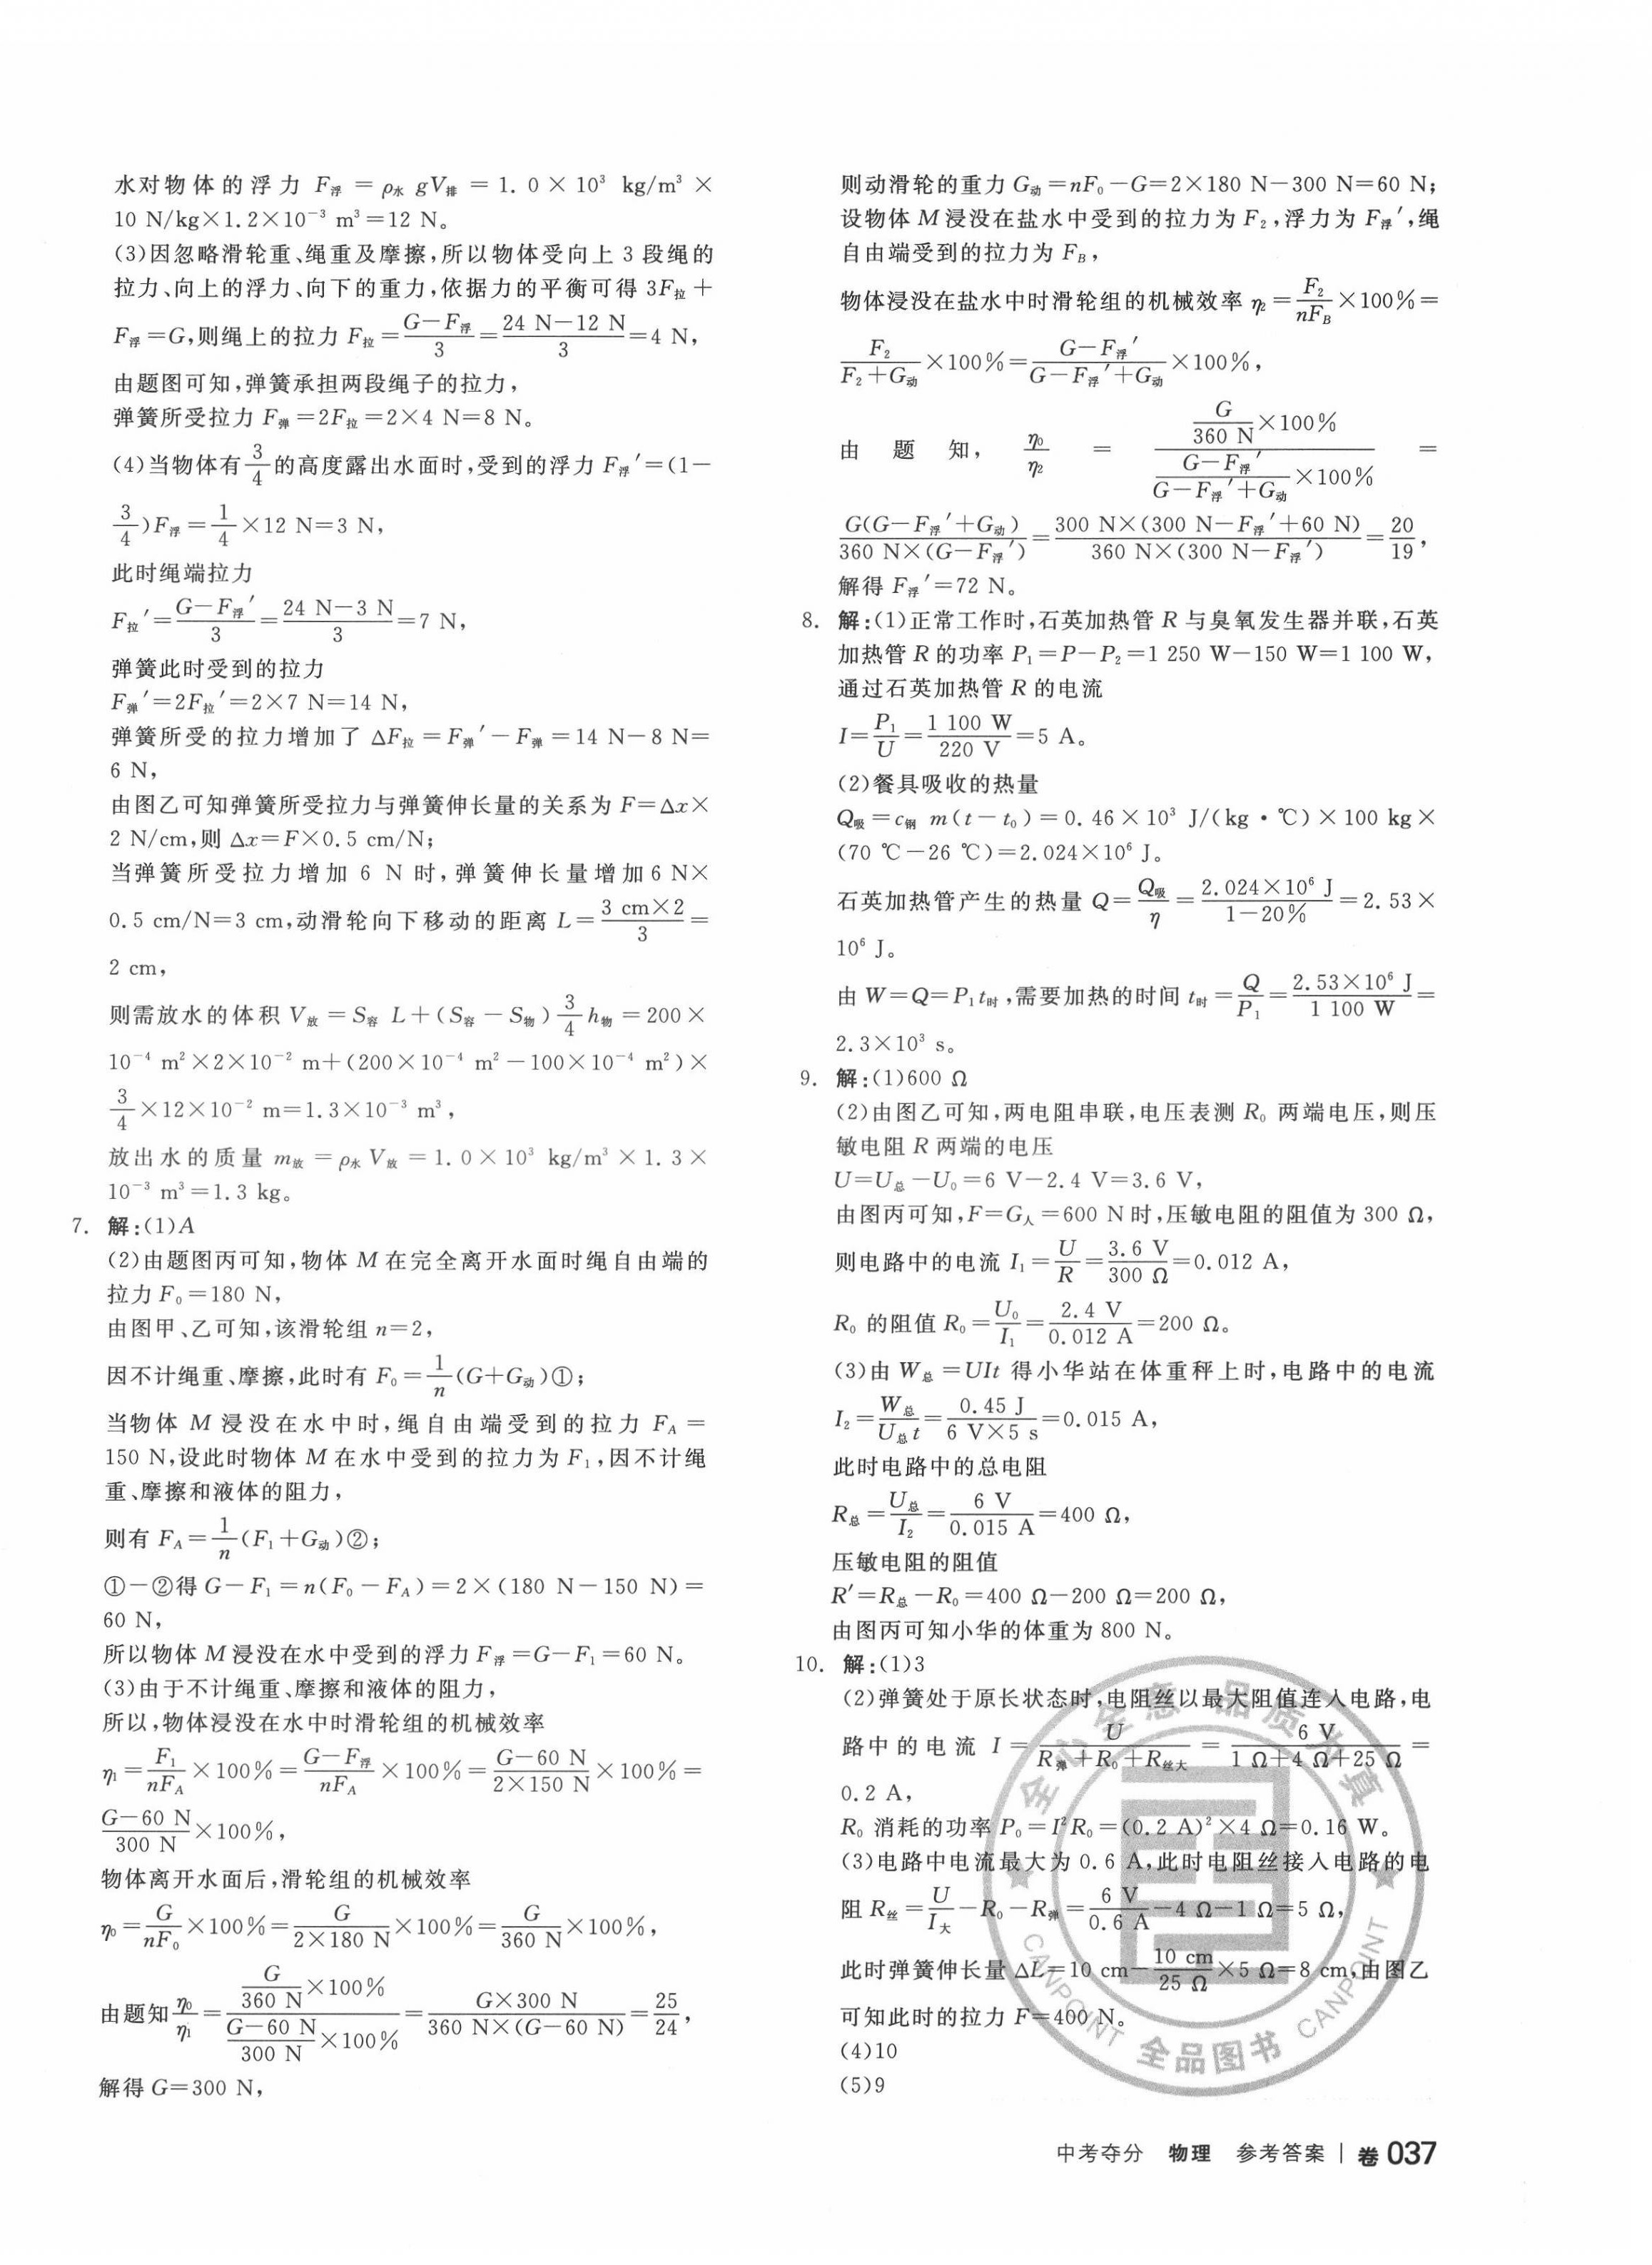 水对物体的浮力 F浮 = ρ水 gV排 = 1.0×10³ kg/m³ ×
10 N/kg×1.2×10⁻³ m³=12 N。
(3)因忽略滑轮重、绳重及摩擦,所以物体受向上 3 段绳的
拉力、向上的浮力、向下的重力,依据力的平衡可得 3F拉+
F浮=G,则绳上的拉力 F拉=(G-F浮)/3=(24 N-12 N)/3=4 N,
由题图可知,弹簧承担两段绳子的拉力,
弹簧所受拉力 F弹=2F拉=2×4 N=8 N。
(4)当物体有3/4的高度露出水面时,受到的浮力 F浮′=(1-
3/4)F浮=1/4×12 N=3 N,
此时绳端拉力
F拉′=(G-F浮′)/3=(24 N-3 N)/3=7 N,
弹簧此时受到的拉力
F弹′=2F拉′=2×7 N=14 N,
弹簧所受的拉力增加了 ΔF拉=F弹′-F弹=14 N-8 N=
6 N,
由图乙可知弹簧所受拉力与弹簧伸长量的关系为 F=Δx×
2 N/cm,则 Δx=F×0.5 cm/N;
当弹簧所受拉力增加 6 N 时,弹簧伸长量增加6 N×
0.5 cm/N=3 cm,动滑轮向下移动的距离 L=(3 cm×2)/3=
2 cm,
则需放水的体积 V放=S容 L+(S容-S物)3/4 h物=200×
10⁻⁴ m²×2×10⁻² m+(200×10⁻⁴ m²-100×10⁻⁴ m²)×
3/4×12×10⁻² m=1.3×10⁻³ m³,
放出水的质量 m放=ρ水V放=1.0×10³ kg/m³×1.3×
10⁻³ m³=1.3 kg。
7. 解:(1)A
(2)由题图丙可知,物体 M 在完全离开水面时绳自由端的
拉力 F₀=180 N,
由图甲、乙可知,该滑轮组 n=2,
因不计绳重、摩擦,此时有 F₀=1/n(G+G动)①;
当物体 M 浸没在水中时,绳自由端受到的拉力 F_A=
150 N,设此时物体 M 在水中受到的拉力为 F₁,因不计绳
重、摩擦和液体的阻力,
则有 F_A=1/n(F₁+G动)②;
①-②得 G-F₁=n(F₀-F_A)=2×(180 N-150 N)=
60 N,
所以物体 M 浸没在水中受到的浮力 F浮=G-F₁=60 N。
(3)由于不计绳重、摩擦和液体的阻力,
所以,物体浸没在水中时滑轮组的机械效率
η₁=F₁/(nF_A)×100%=(G-F浮)/(nF_A)×100%=(G-60 N)/(2×150 N)×100%=
(G-60 N)/(300 N)×100%,
物体离开水面后,滑轮组的机械效率
η₀=G/(nF₀)×100%=G/(2×180 N)×100%=G/(360 N)×100%,
由题知η₀/η₁=(G/(360 N)×100%)/((G-60 N)/(300 N)×100%)=(G×300 N)/(360 N×(G-60 N))=25/24,
解得 G=300 N,
则动滑轮的重力 G动=nF₀-G=2×180 N-300 N=60 N;
设物体 M 浸没在盐水中受到的拉力为 F₂,浮力为 F浮′,绳
自由端受到的拉力为 F_B,
物体浸没在盐水中时滑轮组的机械效率 η₂=F₂/(nF_B)×100%=
F₂/(F₂+G动)×100%=(G-F浮′)/(G-F浮′+G动)×100%,
由题知,η₀/η₂=(G/(360 N)×100%)/((G-F浮′)/(G-F浮′+G动)×100%)=
(G(G-F浮′+G动))/(360 N×(G-F浮′))=(300 N×(300 N-F浮′+60 N))/(360 N×(300 N-F浮′))=20/19,
解得 F浮′=72 N。
8. 解:(1)正常工作时,石英加热管 R 与臭氧发生器并联,石英
加热管 R 的功率 P₁=P-P₂=1 250 W-150 W=1 100 W,
通过石英加热管 R 的电流
I=P₁/U=1 100 W/220 V=5 A。
(2)餐具吸收的热量
Q吸=c钢 m(t-t₀)=0.46×10³ J/(kg·℃)×100 kg×
(70 ℃-26 ℃)=2.024×10⁶ J。
石英加热管产生的热量 Q=Q吸/η=(2.024×10⁶ J)/(1-20%)=2.53×
10⁶ J。
由 W=Q=P₁t时,需要加热的时间 t时=Q/P₁=(2.53×10⁶ J)/(1 100 W)=
2.3×10³ s。
9. 解:(1)600 Ω
(2)由图乙可知,两电阻串联,电压表测 R₀ 两端电压,则压
敏电阻 R 两端的电压
U=U总-U₀=6 V-2.4 V=3.6 V,
由图丙可知,F=G人=600 N 时,压敏电阻的阻值为 300 Ω,
则电路中的电流 I₁=U/R=3.6 V/300 Ω=0.012 A,
R₀ 的阻值 R₀=U₀/I₁=2.4 V/0.012 A=200 Ω。
(3)由 W总=UIt 得小华站在体重秤上时,电路中的电流
I₂=W总/(U总t)=0.45 J/(6 V×5 s)=0.015 A,
此时电路中的总电阻
R总=U总/I₂=6 V/0.015 A=400 Ω,
压敏电阻的阻值
R′=R总-R₀=400 Ω-200 Ω=200 Ω,
由图丙可知小华的体重为 800 N。
10. 解:(1)3
(2)弹簧处于原长状态时,电阻丝以最大阻值连入电路,电
路中的电流 I=U/(R弹+R₀+R丝大)=6 V/(1 Ω+4 Ω+25 Ω)=
0.2 A,
R₀ 消耗的功率 P₀=I²R₀=(0.2 A)²×4 Ω=0.16 W。
(3)电路中电流最大为 0.6 A,此时电阻丝接入电路的电
阻 R丝=U/I大-R₀-R弹=6 V/0.6 A-4 Ω-1 Ω=5 Ω,
此时弹簧伸长量 ΔL=10 cm-10 cm/25 Ω×5 Ω=8 cm,由图乙
可知此时的拉力 F=400 N。
(4)10
(5)9
全心全意 品质为真
CANPOINT 全品图书 CANPOINT
中考夺分 物理 参考答案 | 卷 037